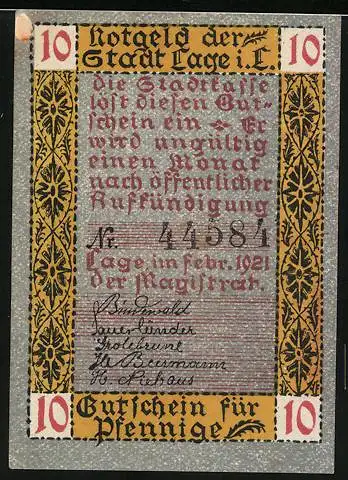 10 Notgeld der 10
Stadt Lage i. L.
die Stadtkasse
löst diesen Gut-
schein ein Er
wird ungültig
einen Monat
nach öffentlicher
Aufkündigung
Nr. 44584
Lage, im febr. 1921
der Magistrat.
Sauerländer
H. Niehaus
10 Gutschein für 10
Pfennige